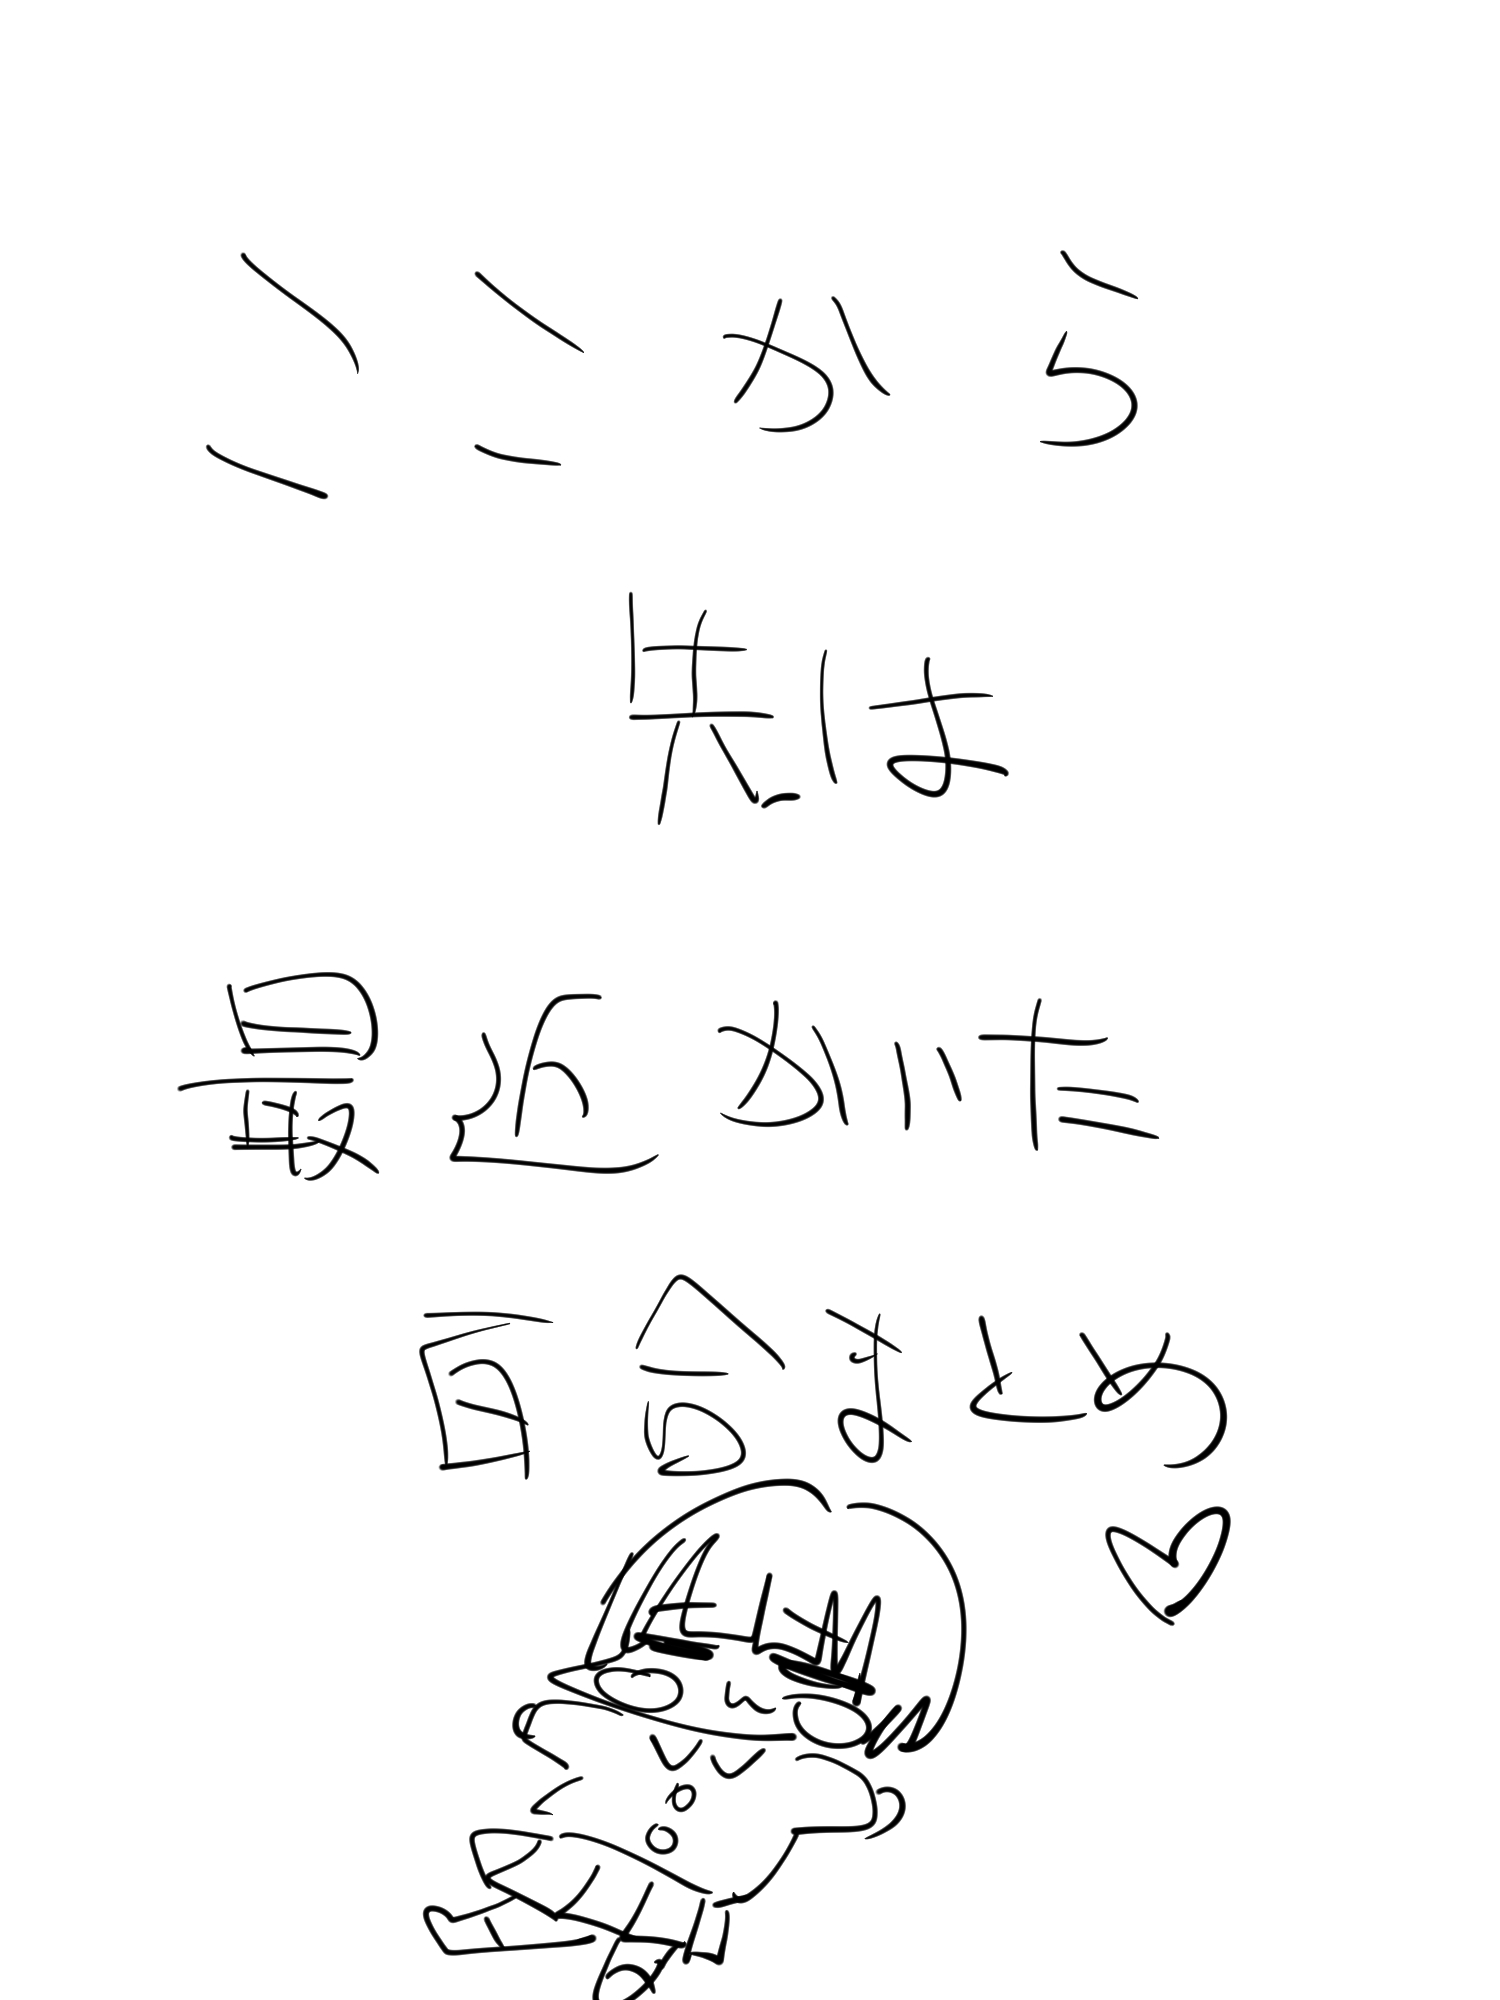 ここから
先は
最近かいた
百合まとめ